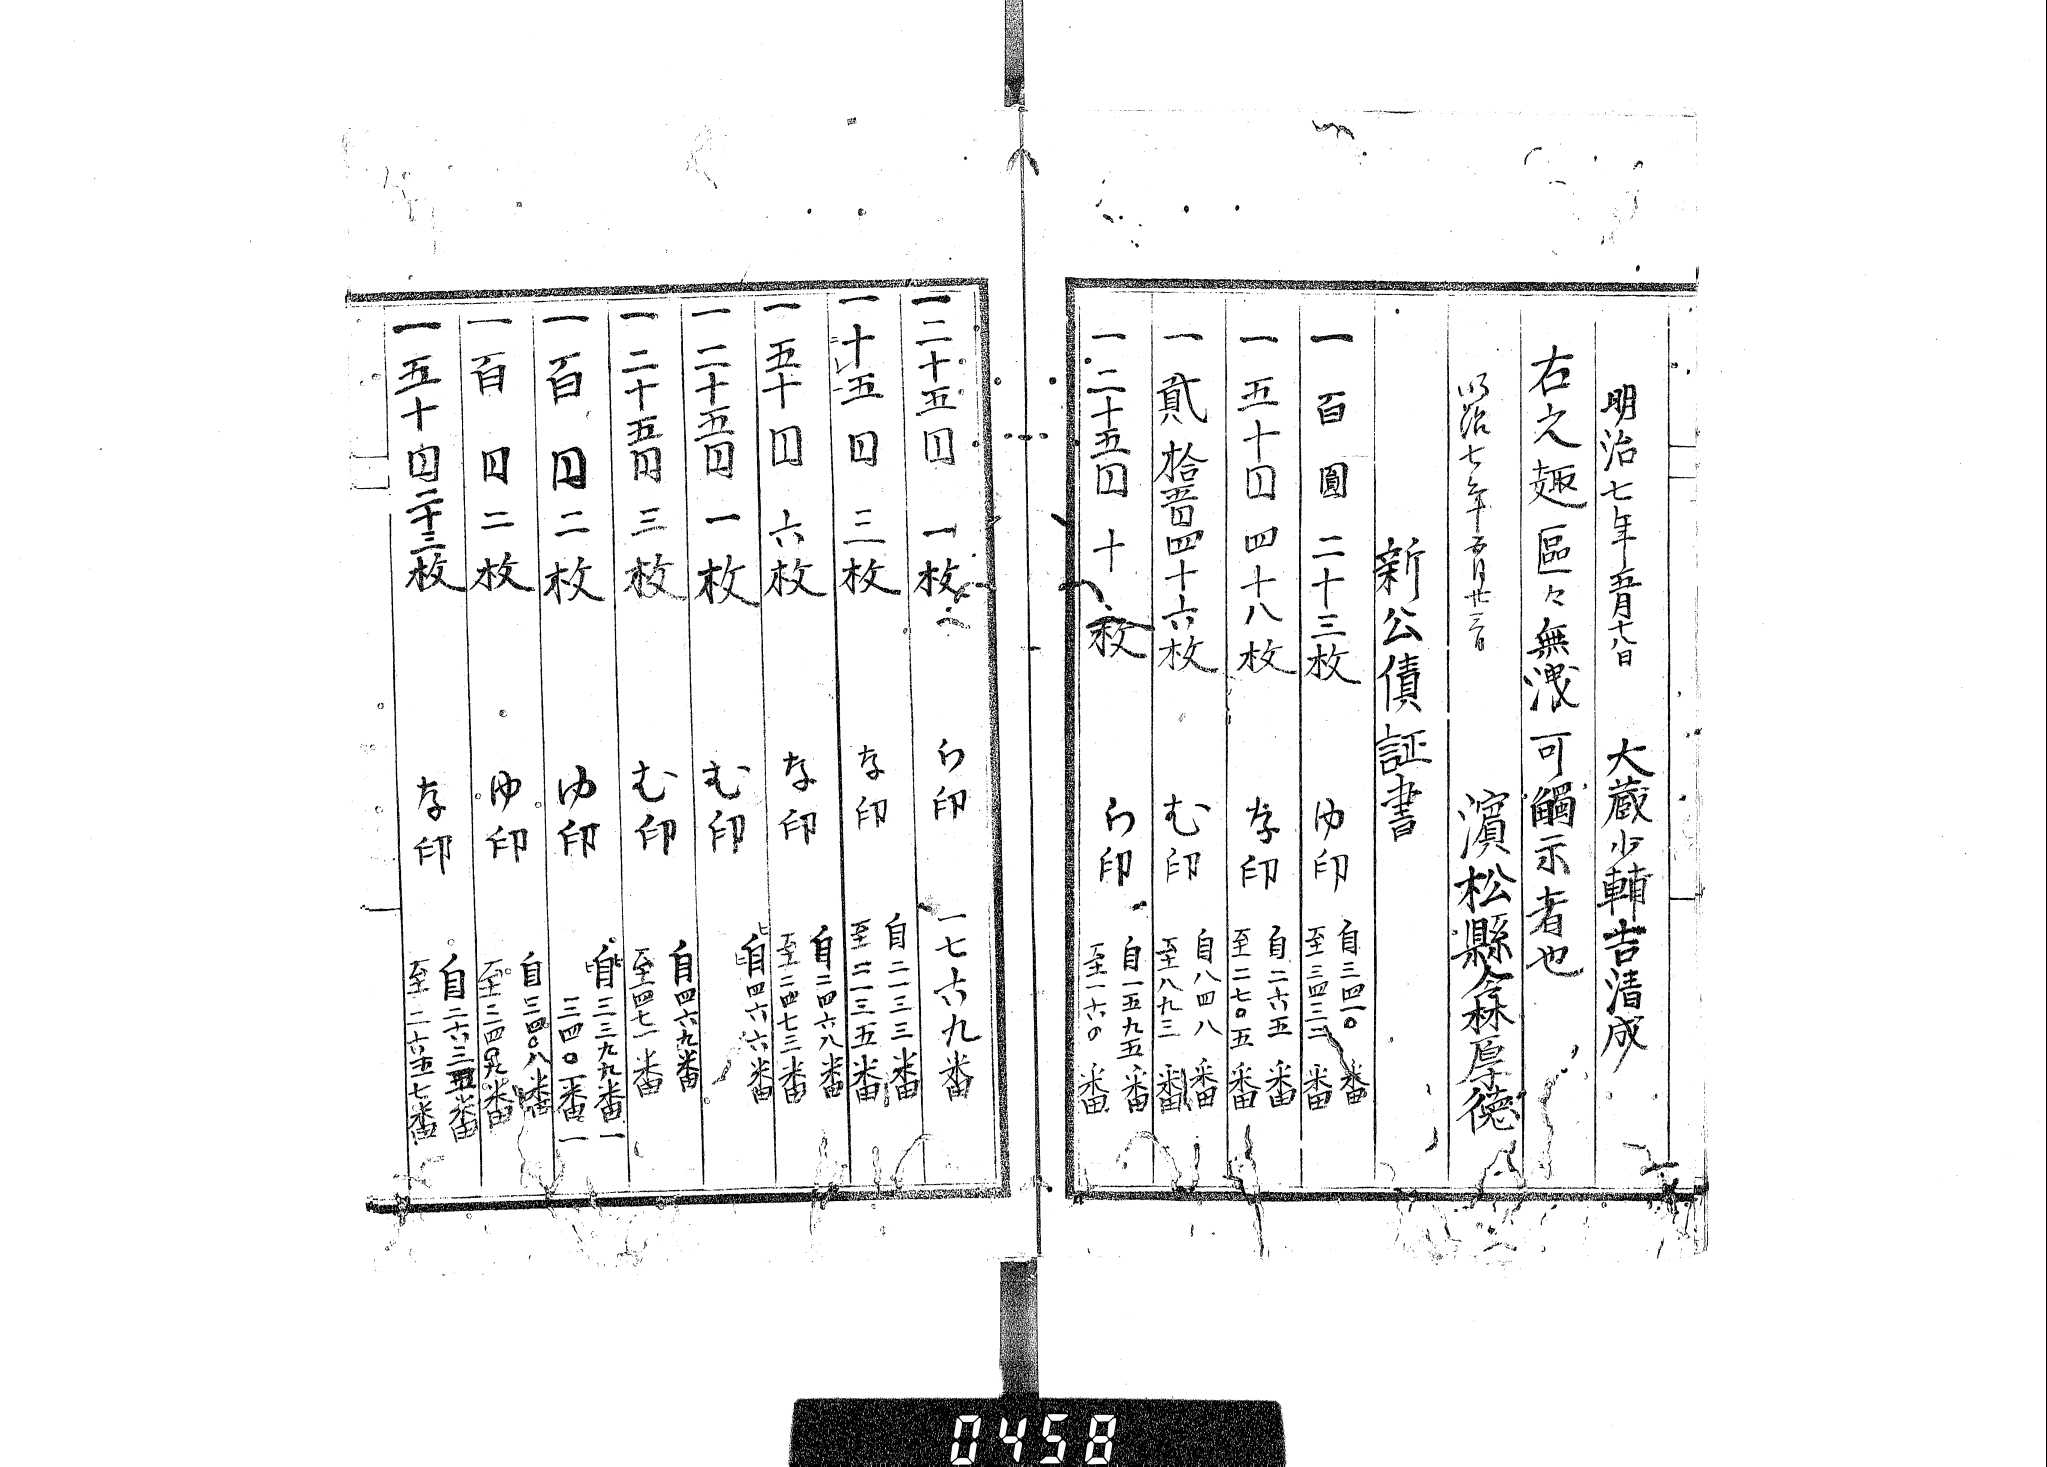 明治七年五月十八日　大蔵少輔吉田清成
右之趣區々無洩可觸示者也
明治七年五月廿三日　濱松縣令林厚徳
新公債証書
一百圓二十三枚　ゆ印　自三四一〇番
至三四三二番
一五十円四十八枚　な印　自二六五番
至二七〇五番
一貳拾五円四十六枚　む印　自八四八番
至八九三番
一二十五円十枚　ら印　自一五九五番
至一六〇番
一二十五円一枚　ら印　一七六九番
一十五円三枚　な印　自二一三三番
至二一三五番
一五十円六枚　な印　自二四六八番
至二四七三番
一二十五円一枚　む印　自四六六番
一二十五円三枚　む印　自四六九番
至四七一番
一百円二枚　ゆ印　自三三九九番
三四〇〇番
一百円二枚　ゆ印　自三四〇八番
至三四〇九番
一五十円二十三枚　な印　自二六三五番
至二六五七番
0458